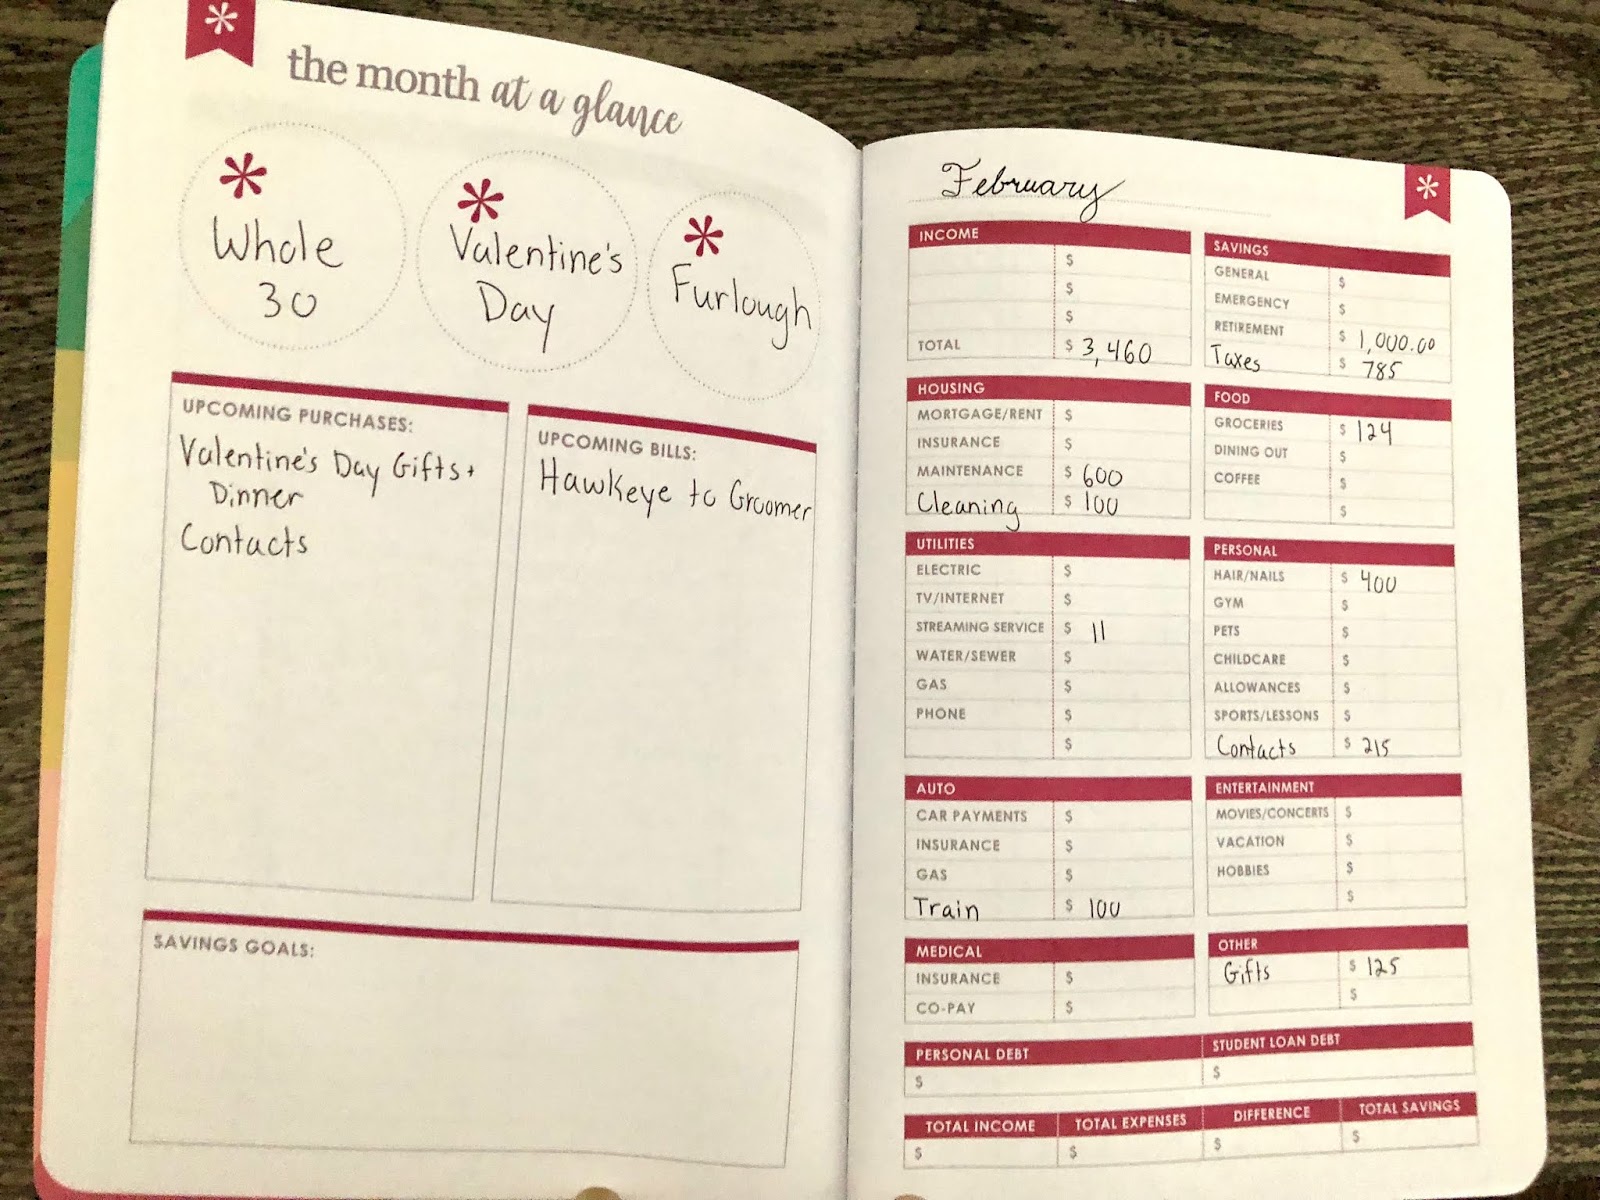 the month at a glance
Whole
30
Valentine's
Day
Furlough
UPCOMING PURCHASES:
Valentine's Day Gifts +
Dinner
Contacts
UPCOMING BILLS:
Hawkeye to Groomer
SAVINGS GOALS:
February
INCOME
$
$
$
TOTAL $ 3,460
HOUSING
MORTGAGE/RENT $
INSURANCE $
MAINTENANCE $ 600
Cleaning $ 100
UTILITIES
ELECTRIC $
TV/INTERNET $
STREAMING SERVICE $ 11
WATER/SEWER $
GAS $
PHONE $
$
AUTO
CAR PAYMENTS $
INSURANCE $
GAS $
Train $ 100
MEDICAL
INSURANCE $
CO-PAY $
SAVINGS
GENERAL $
EMERGENCY $
RETIREMENT $ 1,000.00
Taxes $ 785
FOOD
GROCERIES $ 124
DINING OUT $
COFFEE $
$
PERSONAL
HAIR/NAILS $ 400
GYM $
PETS $
CHILDCARE $
ALLOWANCES $
SPORTS/LESSONS $
Contacts $ 215
ENTERTAINMENT
MOVIES/CONCERTS $
VACATION $
HOBBIES $
$
OTHER
Gifts $ 125
$
PERSONAL DEBT STUDENT LOAN DEBT
$ $
TOTAL INCOME TOTAL EXPENSES DIFFERENCE TOTAL SAVINGS
$ $ $ $